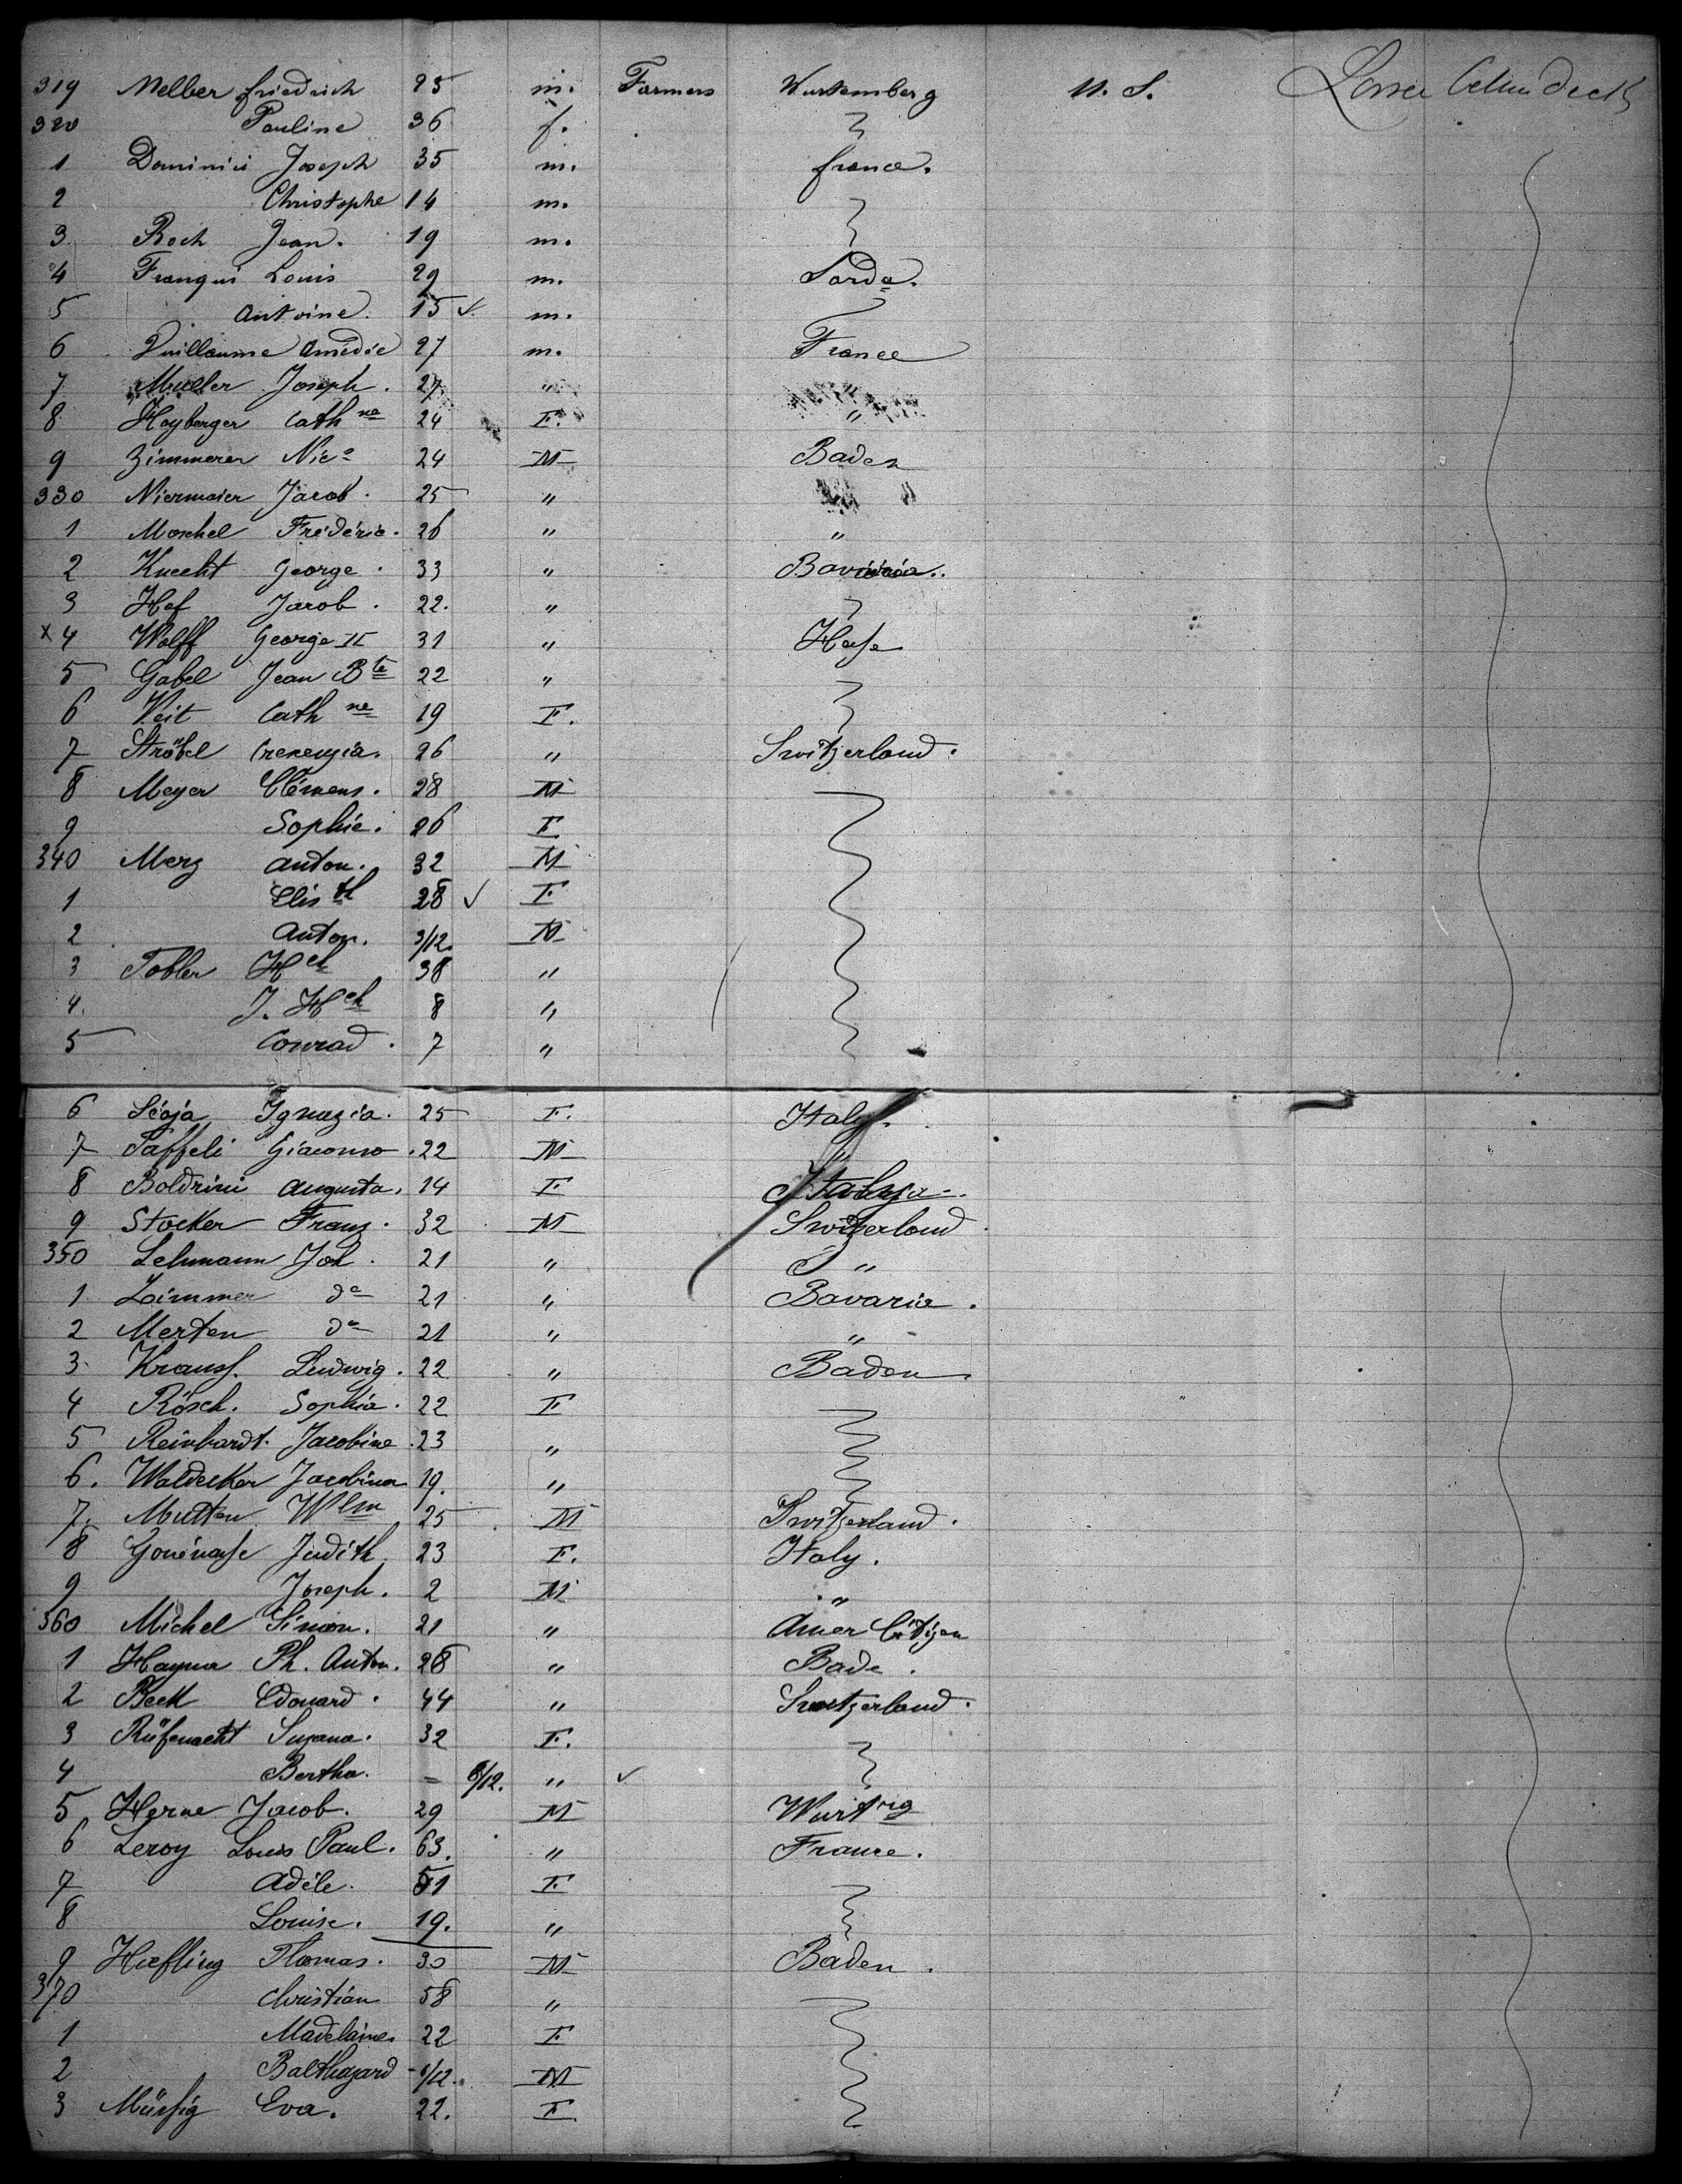 319 Melber friedrich 25 m. Farmers Wurtemberg U. S. Lower Deck
320 Pauline 36 f.
1 Dominici Joseph 35 m. france.
2 Christophe 14 m.
3 Roch Jean. 19 m.
4 Franqui Louis 29 m. Sarde.
5 Antoine. 15 ✓ m.
6 Guillaume Amédée 27 m. France
7 Mueller Joseph. 27 "
8 Hoyberger Cathne 24 F. "
9 Zimmerer Nics 24 M Baden
330 Niermaier Jacob. 25 " "
1 Moschel Fréderic. 26 " "
2 Knecht George. 33 " Bavaria.
3 Hef Jacob. 22. "
x 4 Wolff George II 31 " Hesse
5 Gabel Jean Bte 22 "
6 Veit Cathne 19 F.
7 Ströbel Crezenzia. 26 " Switzerland.
8 Meyer Clémens. 28 M
9 Sophie. 26 F
340 Merz Anton. 32 M
1 Elisth 28 ✓ F
2 Anton. 3/12. M
3 Tobler Hch 38 "
4. J. Hch 8 "
5 Conrad. 7 "
6 Scoja Ignazia. 25 F. Italy.
7 Taffeli Giacomo. 22 M "
8 Boldrini Augusta. 14 F
9 Stocker Franz. 32 M Switzerland
350 Lehmann Joh. 21 " "
1. Zimmer do 21 " Bavaria.
2 Merten do 21 " "
3. Krauss. Ludwig. 22 " Baden
4 Rösch. Sophia. 22 F
5 Reinhardt. Jacobine. 23 "
6. Waldecker Jacobina 19. "
7. Mutten Wlm 25 M Switzerland.
8 Judith. 23 F. Italy.
9 Joseph. 2 M "
360 Michel Simon. 21 " Amer Citizen
1 Hayna Ph. Anton. 28 " Bade.
2 Beck Edouard. 44 " Switzerland.
3 Rüfenacht Suzana. 32 F.
4 Bertha. – 6/12. " ✓
5 Herne Jacob. 29 M Wurtrg
6 Leroy Louis Paul. 63. " France.
7 Adèle. 51 F
8 Louise. 19. "
9 Hiefling Thomas. 30 M Baden.
370 Christian 58 "
1 Madelaine 22 F
2 Balthazard – 6/12. M
3 Müssig Eva. 22. F